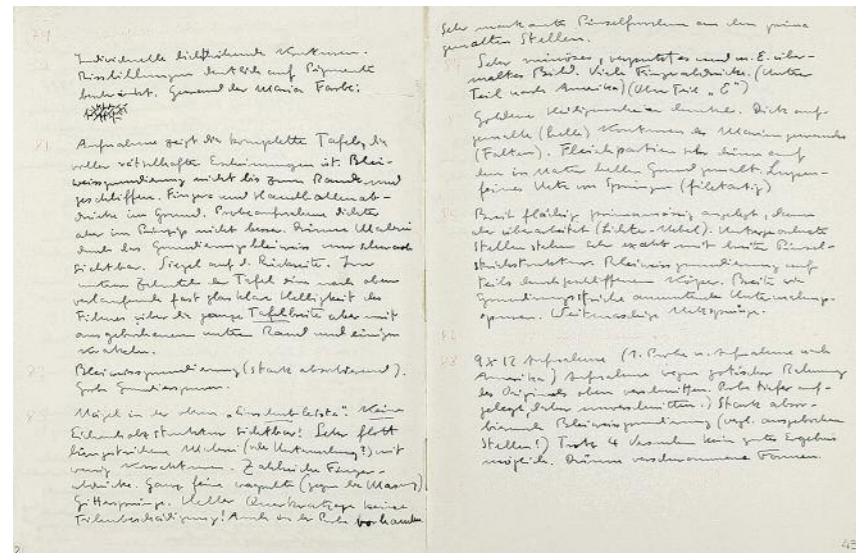 79
Individuelle lichtziehende Konturen.
Rissbildungen deutlich auf Pigmente
beschränkt. Gewand der Maria Farbe:
81
Aufnahme zeigt die komplette Tafel, die
voller rätselhafter Erscheinungen ist. Blei-
weissgrundierung nicht bis zum Rande und
geschliffen. Fingers und Handballenab-
drücke im Grund. Probeaufnahme dichter
aber im Prinzip nicht besser. Dünne Malerei
durch das Grundierungsbleiweiss nur schwach
sichtbar. Siegel auf d. Rückseite. Im
unteren der Tafel eine nach oben
verlaufende fast glasklare Helligkeit des
Filmes über die ganze Tafelbreite aber mit
ausgebrochenem unteren Rand und einigen
Krakelen.
Bleiweissgrundierung (stark absorbierend).
Grobe Grundierspuren.
Nägel in der oberen „Einschubleiste“. Keine
Eichenholzstruktur sichtbar! Sehr flott
hingestrichene Malerei (oder Untermalung?) mit
wenig Korrekturen. Zahlreiche Finger-
abdrücke. Ganz feine (gegen die Maserung)
Gittersprünge. Heller Querkratzer keine
Filmbeschädigung! Auch in der Probe vorhanden
Sehr markante Pinselfurchen an den prima
gemalten Stellen.
Sehr ruinöses, verputztes und m. E. über-
maltes Bild. Viele Fingerabdrücke. (Unterer
Teil nach Amerika) (Ober Teil „E“)
Goldene Heiligenscheine dunkel. Dick auf-
gemalte (helle) Konturen des Mariengewandes
(Falten). Fleischpartien sehr dünn auf
den in Natur hellen Grund gemalt. Lupen-
feines Netz von Sprüngen (filetartig)
Breit flächig primamässig angelegt, dann
aber überarbeitet (Lichter-Nebel). Untergeordnete
Stellen stehen sehr exakt mit breiter Pinsel-
strichstruktur. Bleiweissgrundierung auf
teils durchgeschliffenem Körper. Breite wie
Grundierungsstriche anmutende Untermalungs-
spuren. Weitmaschige Netzsprünge.
9 x 12 Aufnahme (1. Probe u. Aufnahme nach
Amerika) Aufnahme wegen gotischer Rahmung
des Originals oben verschnitten. Probe tiefer auf-
gelegt, daher unverschnitten.) Stark absor-
bierende Bleiweissgrundierung (vergl. ausgebrochene
Stellen!) Trotz 4 Versuchen kein gutes Ergebnis
möglich. Dünne verschwommene Formen.